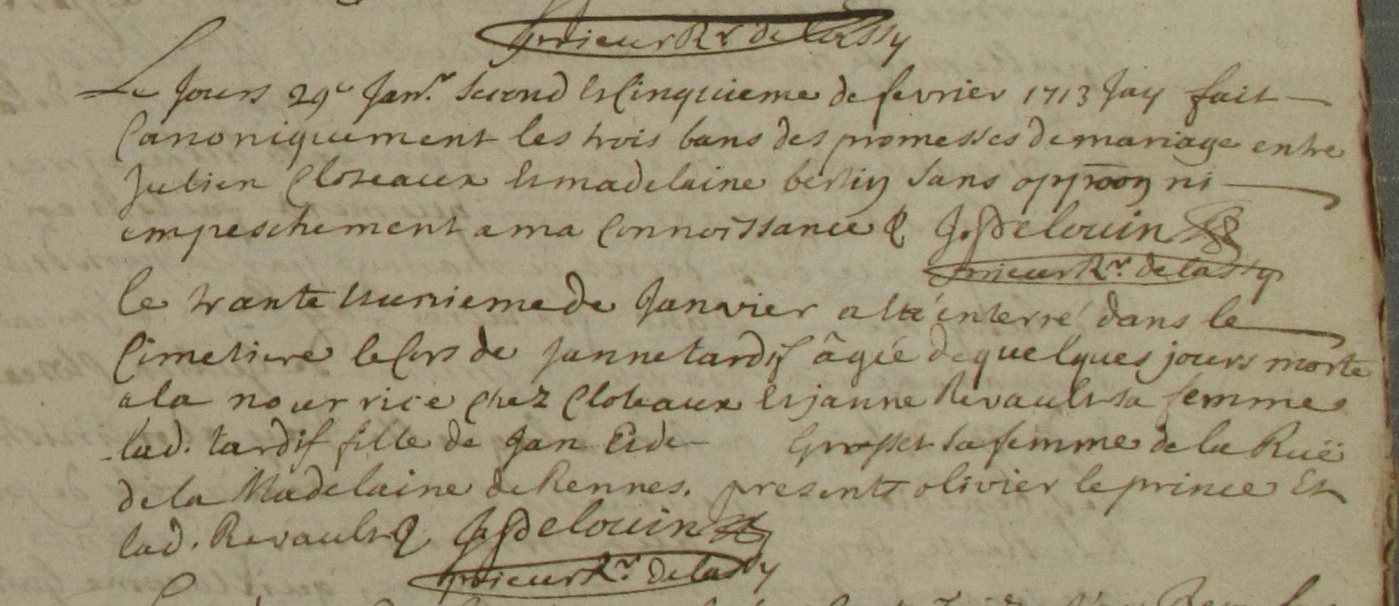 prieur Rr de Lassy
Le Jours 29e Janr. second et Cinquieme de fevrier 1713 Jay fait
Canoniquement les trois bans des promesses de mariage entre
Julien Cloteaux et madelaine bertin sans oppoon ni
empeschement a ma Connoissance & J. Delouin
prieur Rr. de Lassy
le trante et unieme de Janvier a été enterré dans le
Cimetiere le Cors de Janne tardif âgée de quelques jours morte
a la nourrice chez Cloteaux et janne Revault sa femme
lad. tardif fille de Jan et de Grosset sa femme de la Ruë
de la Madelaine de Rennes. presents olivier le prince Et
lad. Revault & J. Delouin
prieur Rr. de Lassy